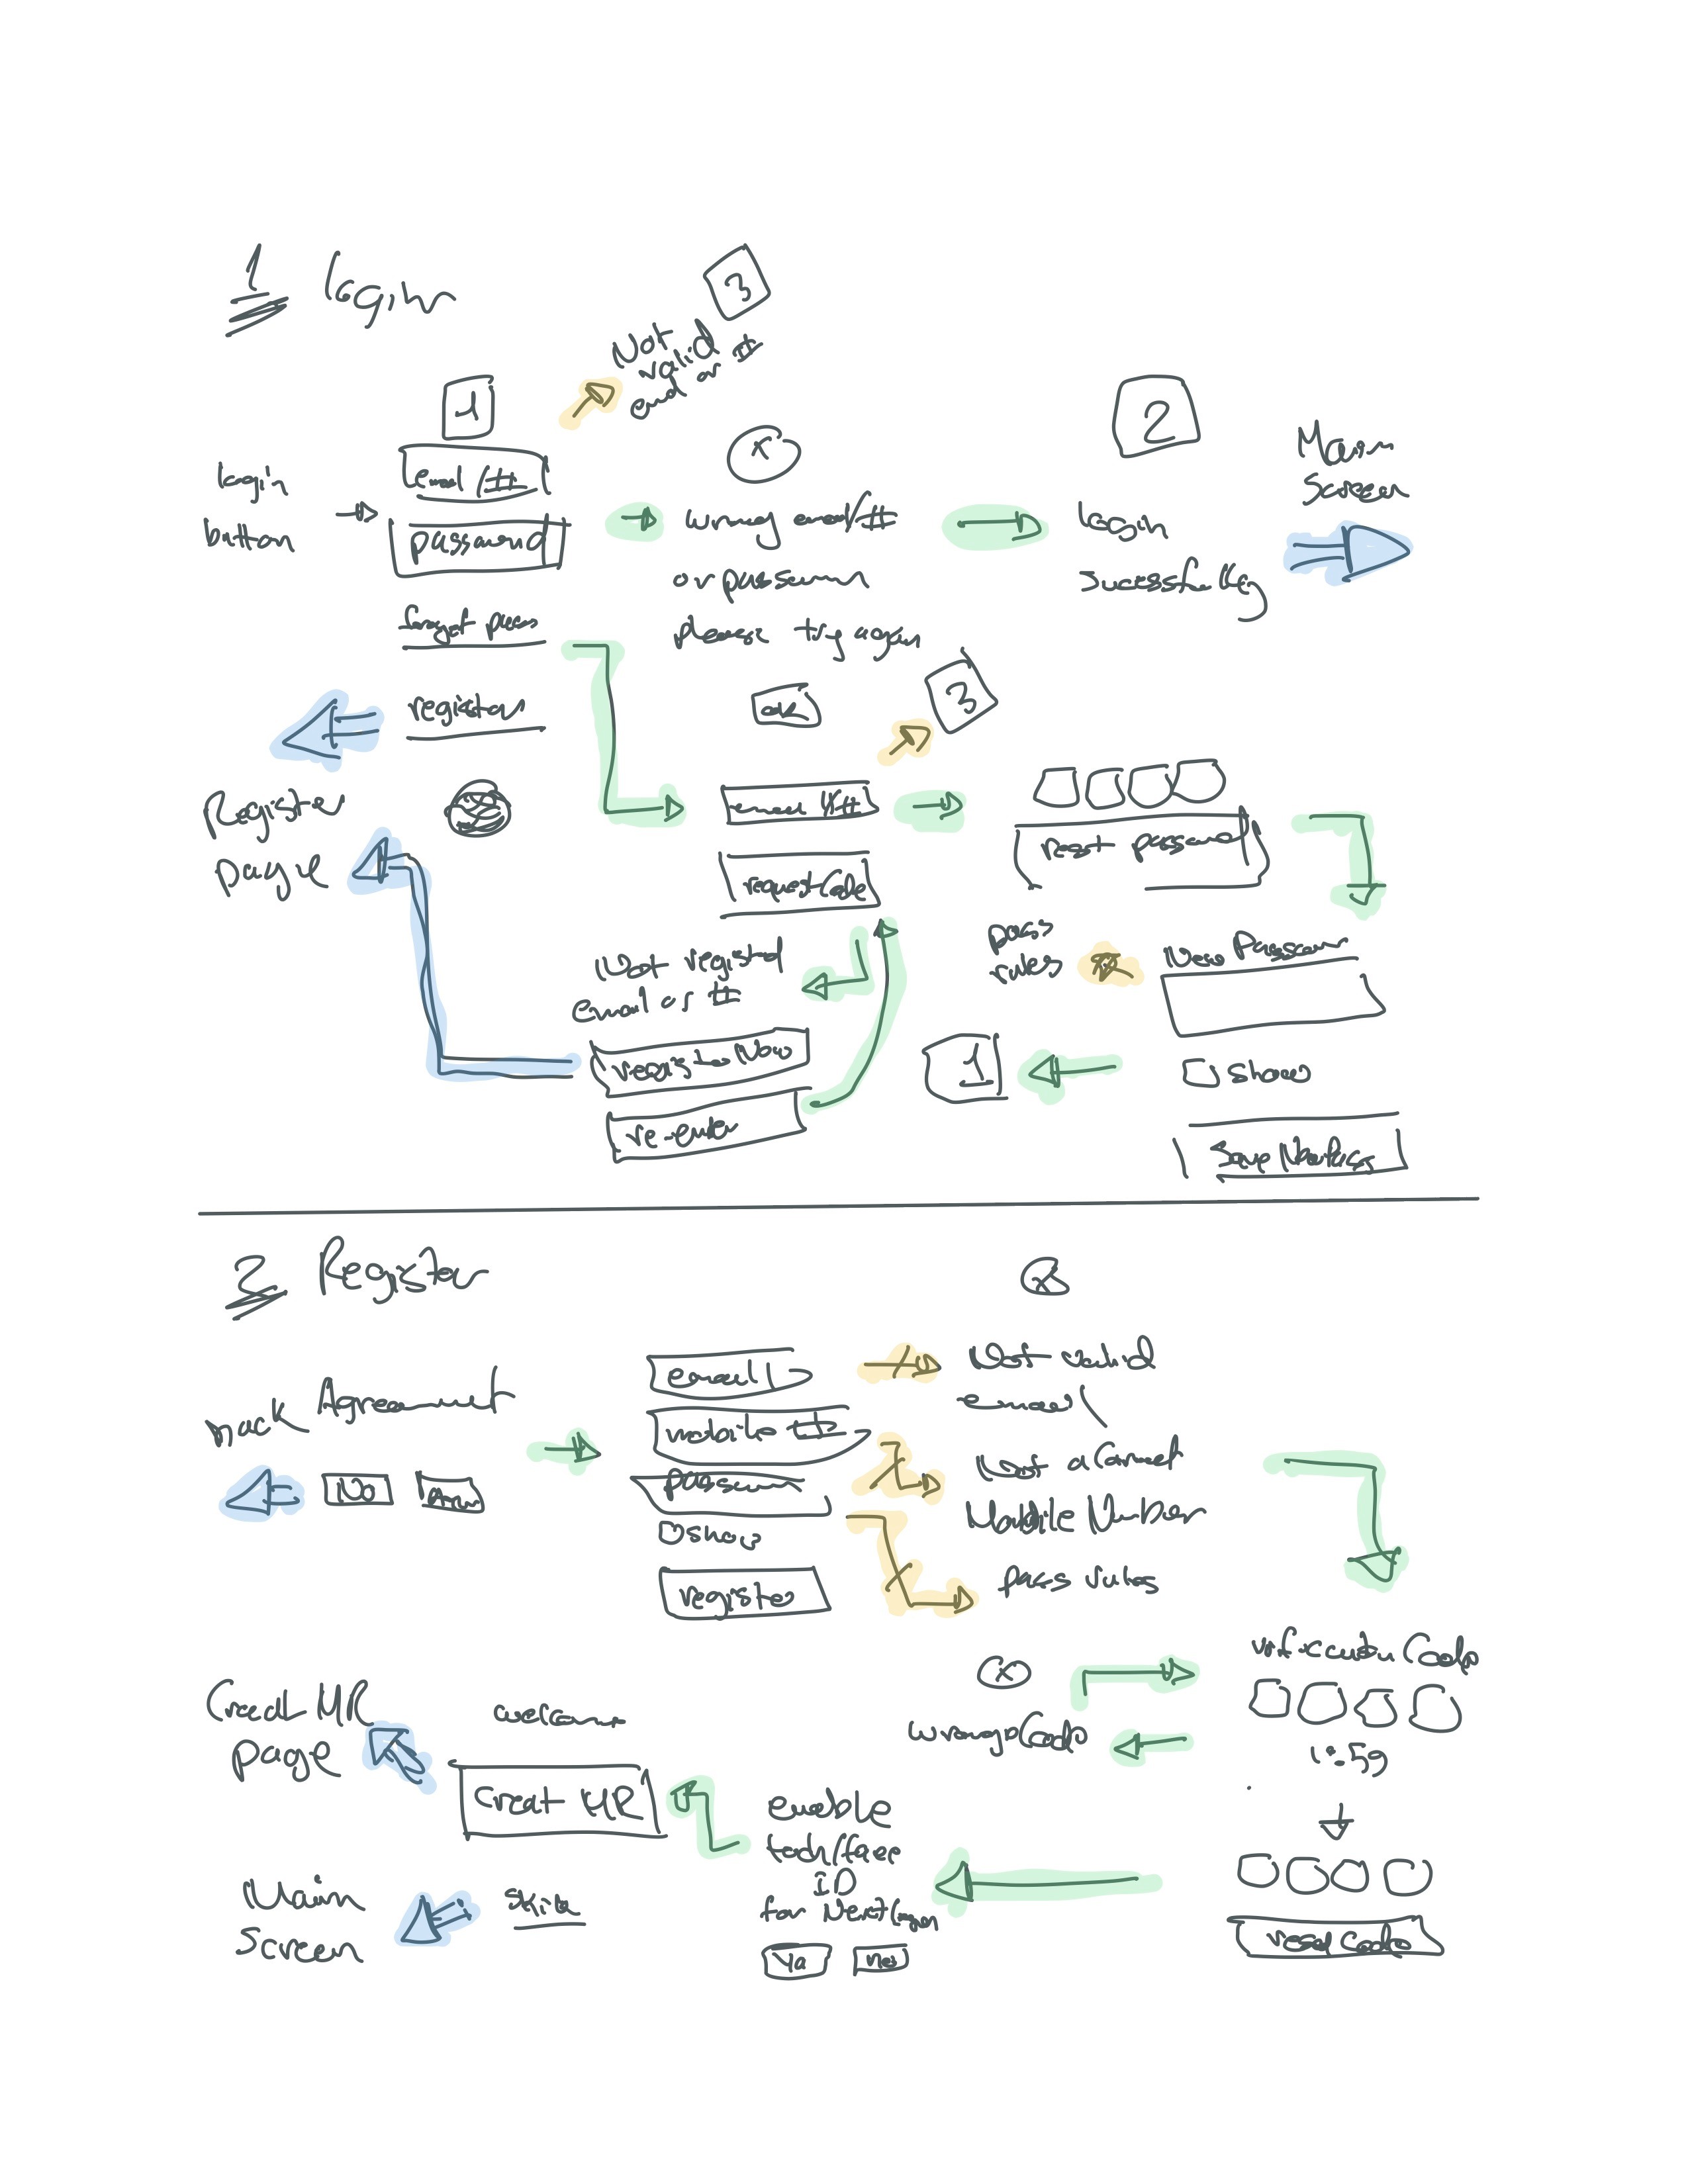 1 login
3
Not
valid
email or #
1
2
Main
Screen
login
button
email /#
password
x
wrong email/#
or passwor
please try again
ok
login
sucessfully
forgot pass
register
Register
page
3
email /#
request Code
reset password
pass
rules
New Passwor
show
Save New Pass
1
Not registed
email or #
register Now
re-enter
2 Register
x
back
Agreement
No
email
mobile #
password
show
register
Not valid
email
Not a Correct
Mobile Number
pass rules
x
wrong Code
Code
1:59
resend Code
enable
toch/face
ID
for Next login
Ya
welcome
Creat MR
Creat MR
page
Skip
Main
Screen